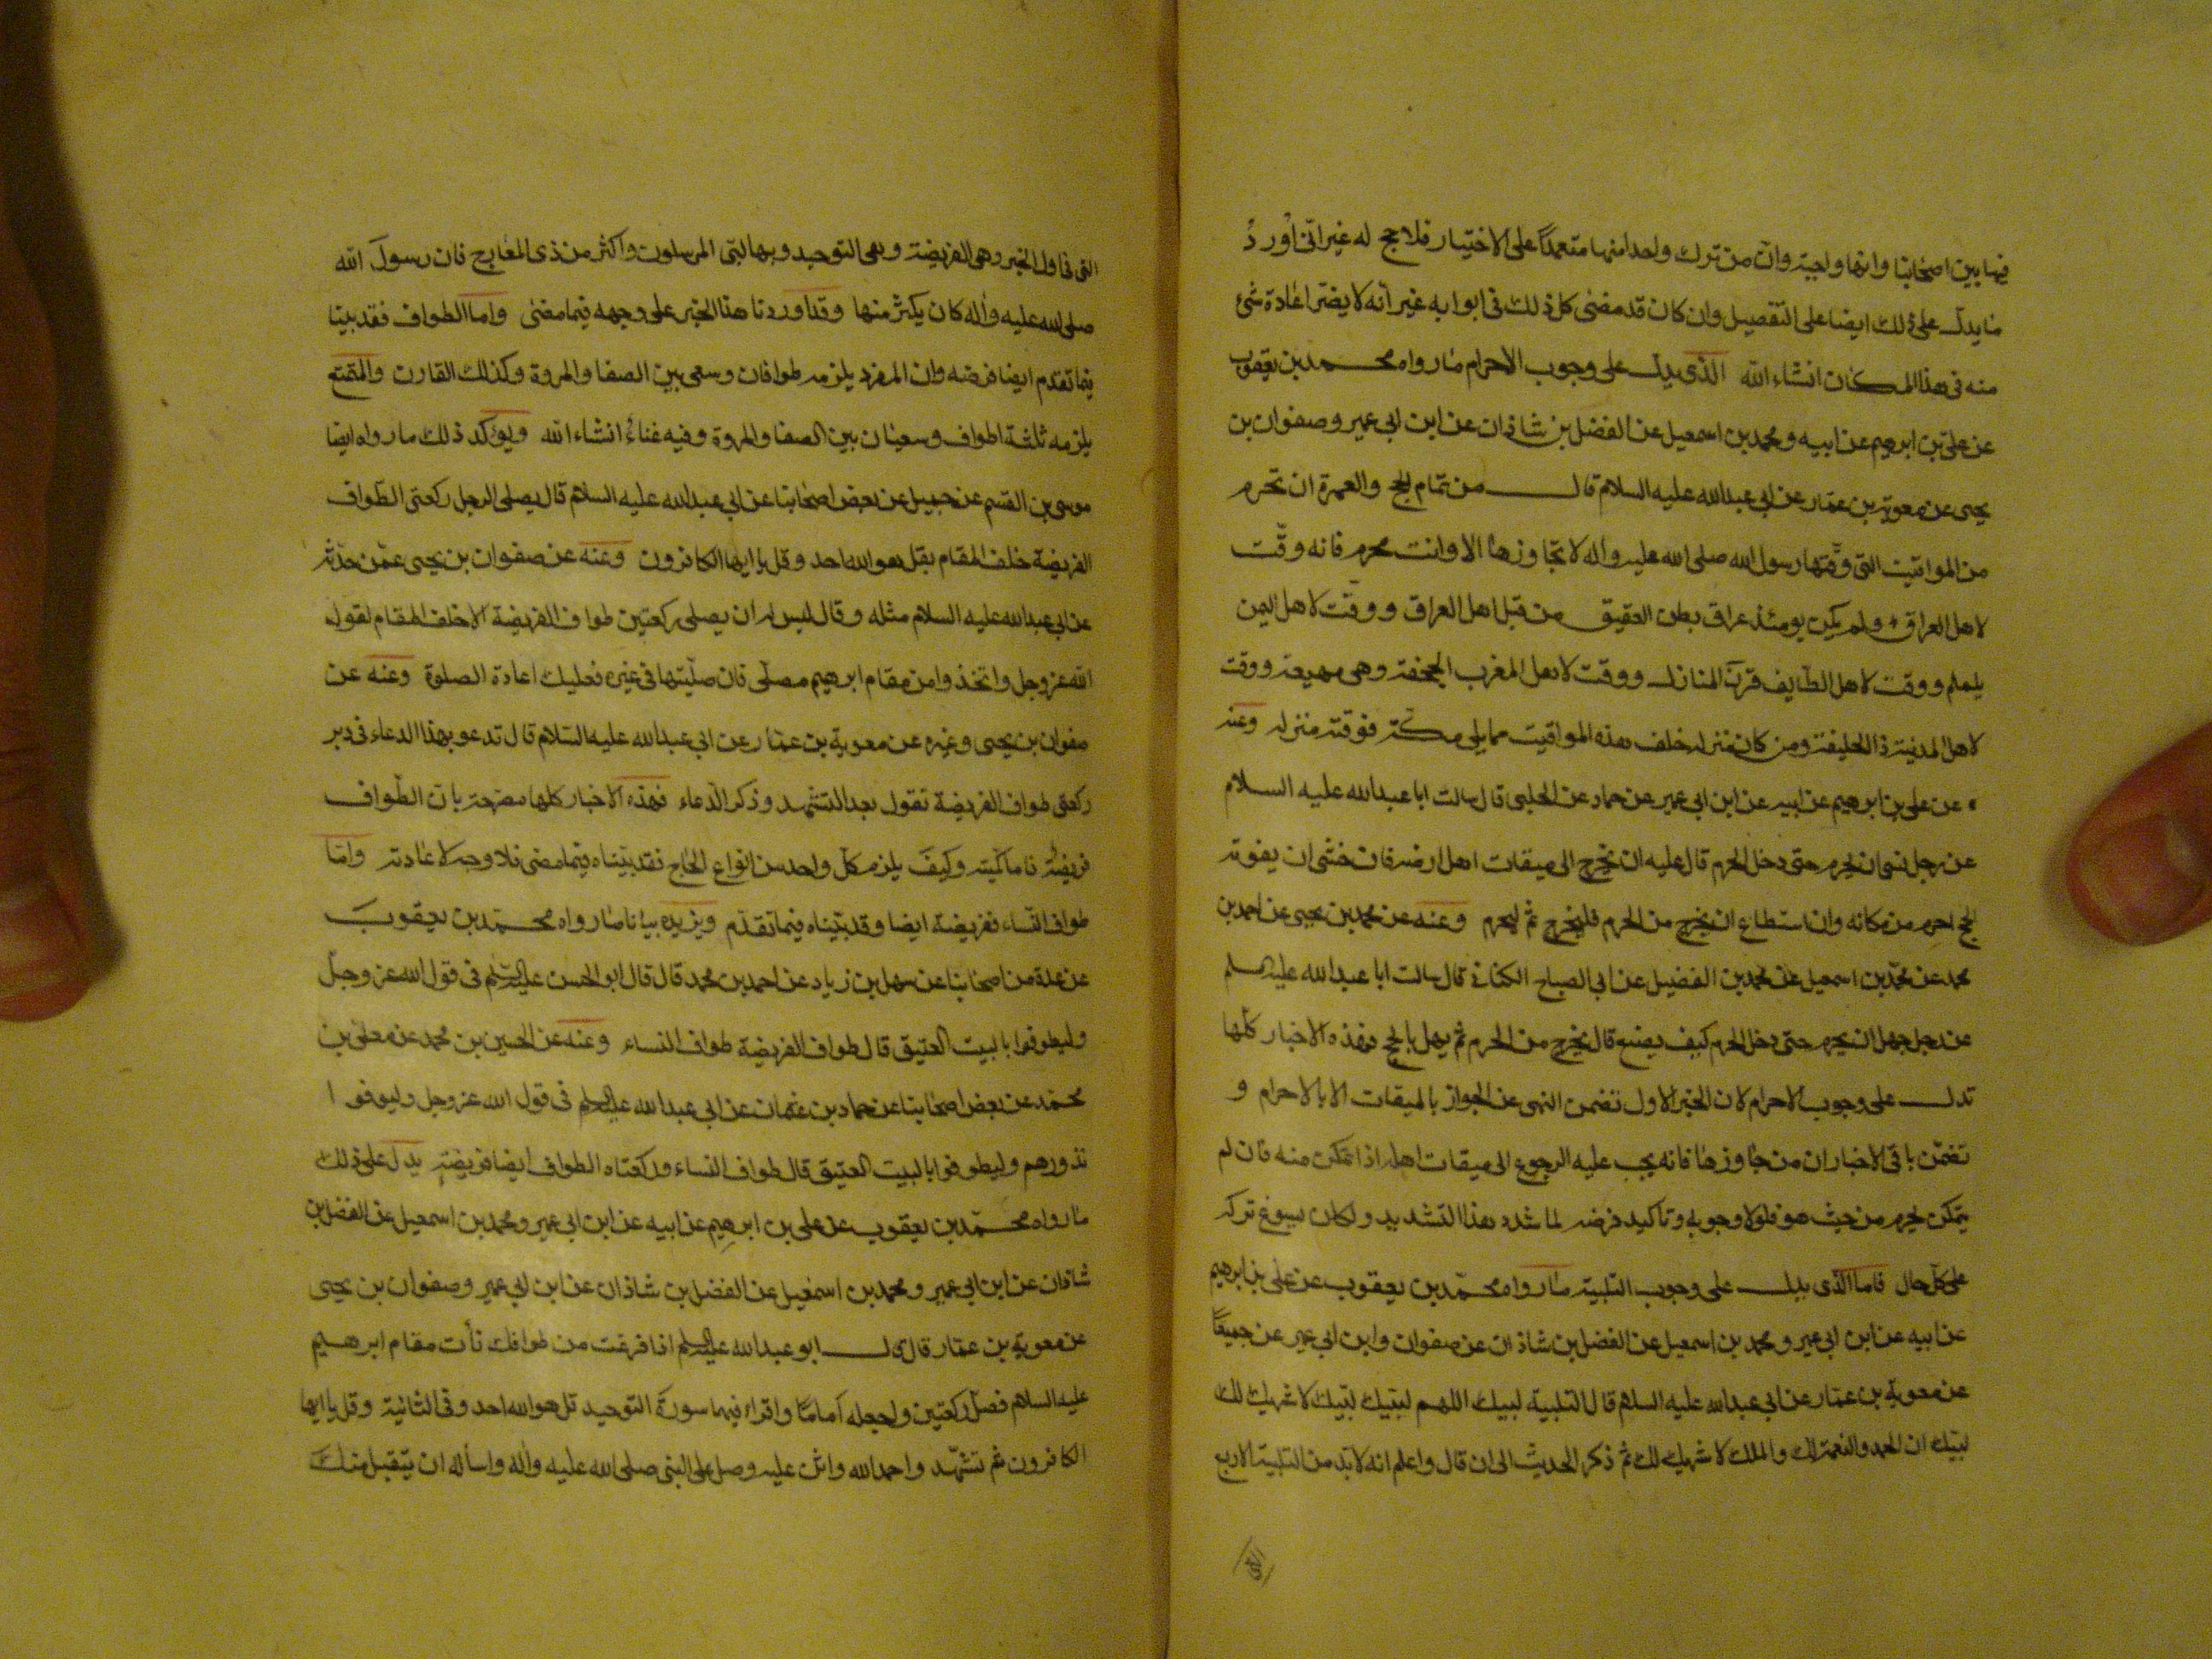 فيها بين اصحابنا وانها واجبة وان من ترك واحدا منها متعمدا على الاختيار فلا حج له غير اني اورد
ما يدل على ذلك ايضا على التفصيل وان كان قد مضى كل ذلك في ابوابه غير انه لا يضر اعادة شئ
منه في هذا المكان انشاء الله الذي يدل على وجوب الاحرام ما رواه محمد بن يعقوب
عن علي بن ابرهيم عن ابيه ومحمد بن اسمعيل عن الفضل بن شاذان عن ابن ابي عمير وصفوان بن
يحيى عن معوية بن عمار عن ابي عبد الله عليه السلام قال من تمام الحج والعمرة ان تحرم
من المواقيت التي وقتها رسول الله صلى الله عليه وآله لا تجاوزها الا وانت محرم فانه وقت
لاهل العراق ولم يكن يومئذ عراق بطن العقيق من قبل اهل العراق ووقت لاهل اليمن
يلملم ووقت لاهل الطايف قرن المنازل ووقت لاهل المغرب الجحفة وهي مهيعة ووقت
لاهل المدينة ذا الحليفة ومن كان منزله خلف هذه المواقيت مما يلي مكة فوقته منزله وعنه
عن علي بن ابرهيم عن ابيه عن ابن ابي عمير عن حماد عن الحلبي قال سالت ابا عبد الله عليه السلام
عن رجل نسى ان يحرم حتى دخل الحرم قال عليه ان يخرج الى ميقات اهل ارضه فان خشى ان يفوته
الحج احرم من مكانه وان استطاع ان يخرج من الحرم فليخرج ثم ليحرم وعنه عن محمد بن يحيى عن احمد بن
محمد عن محمد بن اسمعيل عن محمد بن الفضيل عن ابي الصباح الكناني قال سالت ابا عبد الله عليه السلم
عن رجل جهل ان يحرم حتى دخل الحرم كيف يصنع قال يخرج من الحرم ثم يهل بالحج فهذه الاخبار كلها
تدل على وجوب الاحرام لان الخبر الاول تضمن النهى عن الجواز بالميقات الا بالاحرام و
تضمن باقي الاخبار ان من جاوزها فانه يجب عليه الرجوع الى ميقات اهله اذا تمكن منه فان لم
يتمكن يحرم من حيث هو فلولا وجوبه وتاكيد فرضه لما شدد هذا التشديد ولكان يسوغ تركه
على كل حال فاما الذي يدل على وجوب التلبية ما رواه محمد بن يعقوب عن علي بن ابرهيم
عن ابيه عن ابن ابي عمير ومحمد بن اسمعيل عن الفضل بن شاذان عن صفوان وابن ابي عمير عن جميعا
عن معوية بن عمار عن ابي عبد الله عليه السلام قال التلبية لبيك اللهم لبيك لبيك لا شريك لك
لبيك ان الحمد والنعمة لك والملك لا شريك لك ثم ذكر الحديث الى ان قال واعلم انه لا بد من التلبية الاربع
التي
التي في اول الخبر وهي الفريضة وهي التوحيد وبها لبى المرسلون واكثر من ذى المعارج فان رسول الله
صلى الله عليه وآله كان يكثر منها وقد اوردنا هذا الخبر على وجهه فيما مضى واما الطواف فقد بينا
فيما تقدم ايضا فرضه وان المفرد يلزمه طوافان وسعى بين الصفا والمروة وكذلك القارن والمتمتع
يلزمه ثلثة اطواف وسعيان بين الصفا والمروة وفيه غناء انشاء الله ويؤكد ذلك ما رواه ايضا
موسى بن القسم عن جميل عن بعض اصحابنا عن ابي عبد الله عليه السلام قال يصلى الرجل ركعتى الطواف
الفريضة خلف المقام بقل هو الله احد وقل يا ايها الكافرون وعنه عن صفوان بن يحيى عمن حدثه
عن ابي عبد الله عليه السلام مثله وقال ليس له ان يصلى ركعتين طواف الفريضة الا خلف المقام لقول
الله عز وجل واتخذوا من مقام ابرهيم مصلى فان صليتها في غيره فعليك اعادة الصلوة وعنه عن
صفوان بن يحيى وغيره عن معوية بن عمار عن ابي عبد الله عليه السلام قال تدعو بهذا الدعاء في دبر
ركعتى طواف الفريضة تقول بعد التشهد وذكر الدعاء فهذه الاخبار كلها مصرحة بان الطواف
فريضة فاما كميته وكيف يلزم كل واحد من انواع الحاج فقد بيناه فيما مضى فلا وجه لاعادته واما
طواف النساء ففريضة ايضا وقد بيناه فيما تقدم ويزيده بيانا ما رواه محمد بن يعقوب
عن عدة من اصحابنا عن سهل بن زياد عن احمد بن محمد قال قال ابو الحسن عليه السلم في قول الله عز وجل
وليطوفوا بالبيت العتيق قال طواف الفريضة طواف النساء وعنه عن الحسين بن محمد عن معلى بن
محمد عن بعض اصحابنا عن حماد بن عثمان عن ابي عبد الله عليه السلم في قول الله عز وجل وليوفوا
نذورهم وليطوفوا بالبيت العتيق قال طواف النساء وركعتاه الطواف ايضا فريضة يدل على ذلك
ما رواه محمد بن يعقوب عن علي بن ابرهيم عن ابيه عن ابن ابي عمير ومحمد بن اسمعيل عن الفضل بن
شاذان عن ابن ابي عمير ومحمد بن اسمعيل عن الفضل بن شاذان عن ابن ابي عمير وصفوان بن يحيى
عن معوية بن عمار قال قال ابو عبد الله عليه السلم اذا فرغت من طوافك فأت مقام ابرهيم
عليه السلام فصل ركعتين واجعله أماما واقراء فيهما سورة التوحيد قل هو الله احد وفي الثانية وقل يا ايها
الكافرون ثم تشهد واحمد الله واثن عليه وصل على النبي صلى الله عليه وآله واسأله ان يتقبل منك